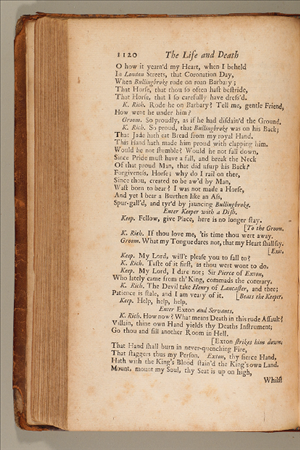 1120 The Life and Death
O how it yearn'd my Heart, when I beheld
In London Streets, that Coronation Day,
When Bullingbroke rode on roan Barbary;
That Horse, that thou so often hast bestride,
That Horse, that I so carefully have dress'd.
K. Rich. Rode he on Barbary? Tell me, gentle Friend,
How went he under him?
Groom. So proudly, as if he had disdain'd the Ground.
K. Rich. So proud, that Bullingbroke was on his Back;
That Jade hath eat Bread from my royal Hand.
This Hand hath made him proud with clapping him.
Would he not stumble? Would he not fall down,
Since Pride must have a fall, and break the Neck
Of that proud Man, that did usurp his Back?
Forgiveness, Horse; why do I rail on thee,
Since thou, created to be aw'd by Man,
Wast born to bear? I was not made a Horse,
And yet I bear a Burthen like an Ass,
Spur-gall'd, and tyr'd by jauncing Bullingbroke.
Enter Keeper with a Dish.
Keep. Fellow, give Place, here is no longer stay.
[To the Groom.
K. Rich. If thou love me, 'tis time thou wert away.
Groom. What my Tongue dares not, that my Heart shall say.
[Exit.
Keep. My Lord, will't please you to fall to?
K. Rich. Taste of it first, as thou wert wont to do.
Keep. My Lord, I dare not; Sir Pierce of Exton,
Who lately came from th' King, commands the contrary.
K. Rich. The Devil take Henry of Lancaster, and thee;
Patience is stale, and I am weary of it. [Beats the Keeper.
Keep. Help, help, help.
Enter Exton and Servants.
K. Rich. How now? What means Death in this rude Assault?
Villain, thine own Hand yields thy Deaths Instrument;
Go thou and fill another Room in Hell.
[Exton strikes him down.
That Hand shall burn in never-quenching Fire,
That staggers thus my Person. Exton, thy fierce Hand,
Hath with the King's Blood stain'd the King's own Land.
Mount, mount my Soul, thy Seat is up on high,
Whilst